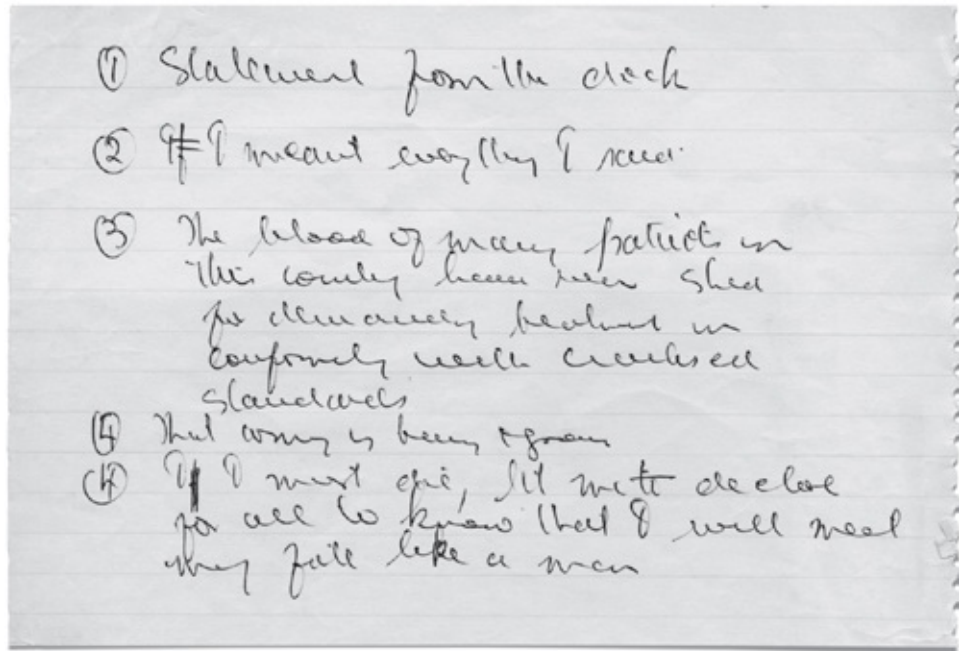 ① Statement from the dock
② I meant everything I said.
③ The blood of many patriots in
this country have been shed
for demanding treatment in
conformity with civilised
standards
④ That army is being
④ If I must die, let me declare
for all to know that I will meet
my fate like a man